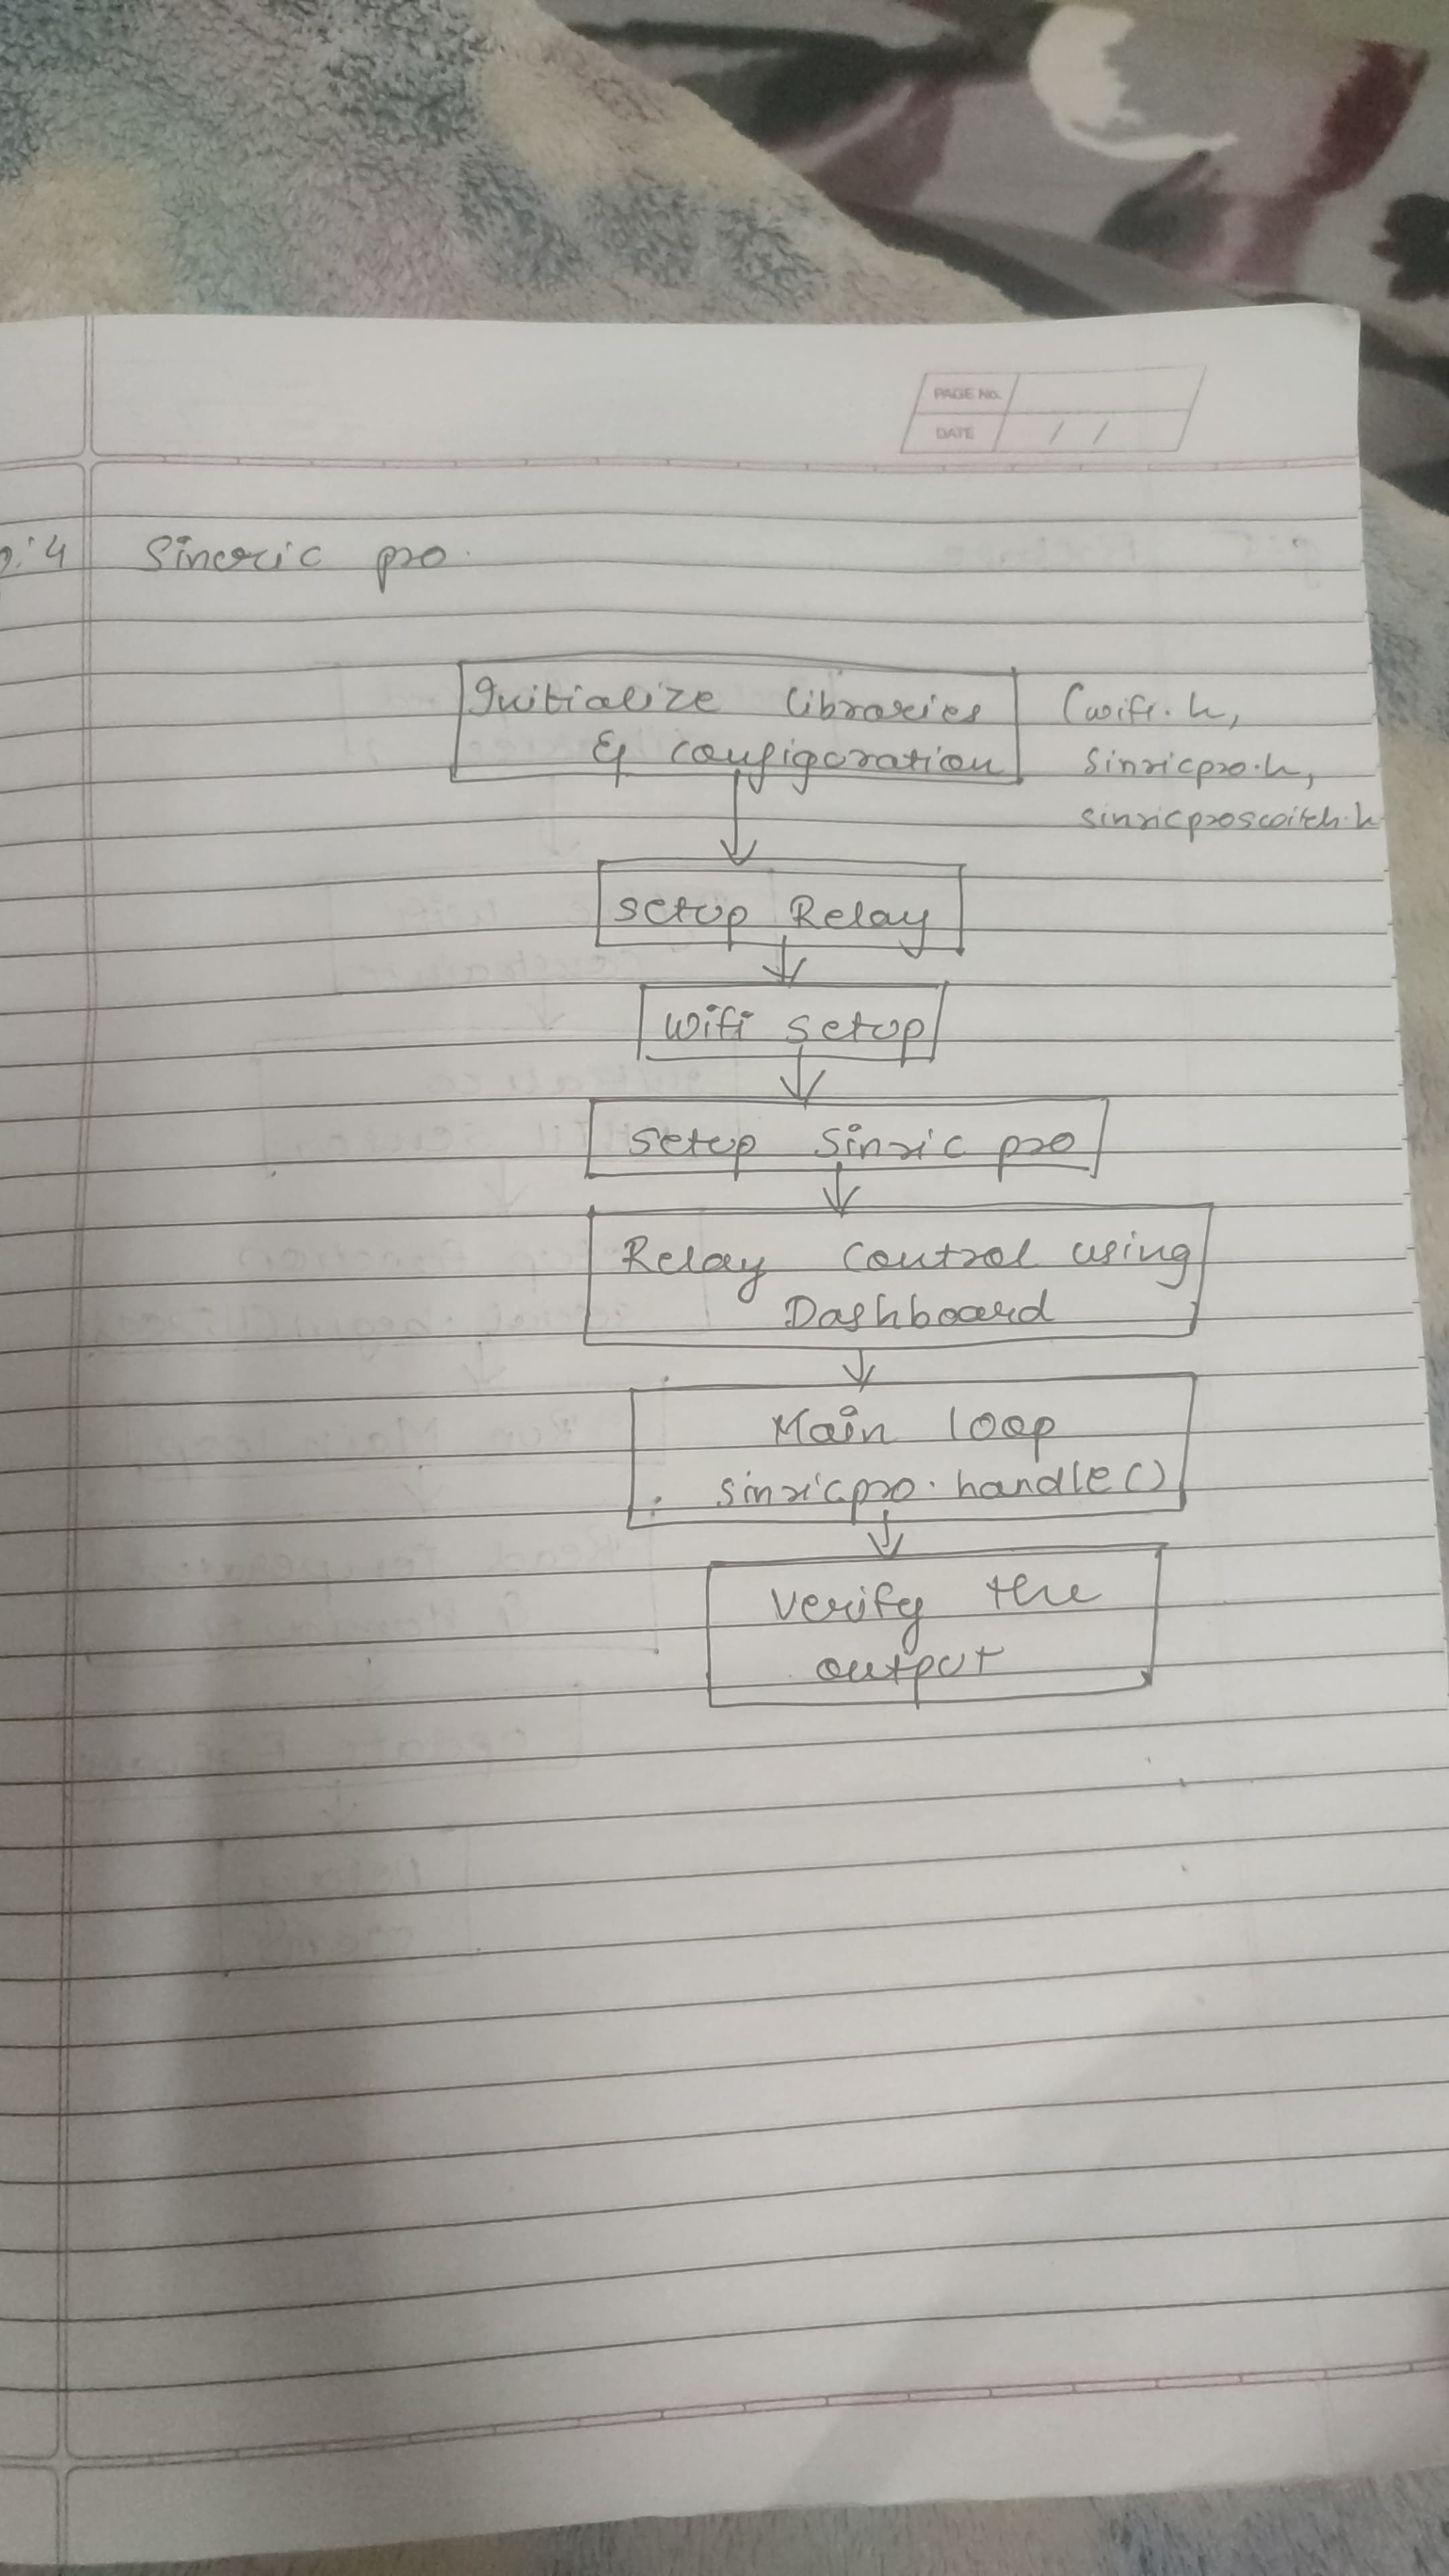 PAGE No.
DATE / /
: 4 Sinoric pro.
Initialize libraries (wifi.h,
& configoration sinricpro.h,
sinricproswitch.h
setup Relay
wifi setup
setup Sinric pro
Relay control using
Dashboard
Main loop
sinricpro.handle()
Verify the
output